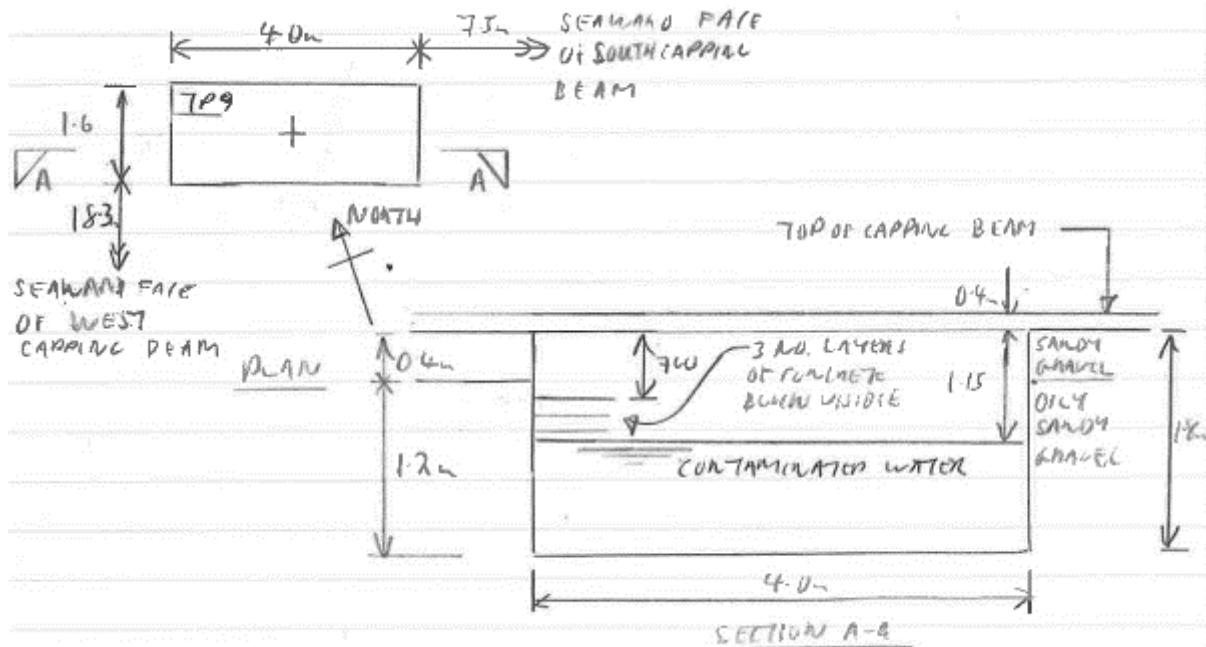 4.0m
7.5m
SEAWARD FACE
OF SOUTH CAPPING
BEAM
TP9
1.6
A
A
18.3m
NORTH
SEAWARD FACE
OF WEST
CAPPING BEAM
PLAN
TOP OF CAPPING BEAM
0.4m
0.4m
700
3 NO. LAYERS
OF CONCRETE
VISIBLE
1.15
SANDY
GRAVEL
OILY
SANDY
GRAVEL
1.2m
CONTAMINATED WATER
4.0m
SECTION A-A